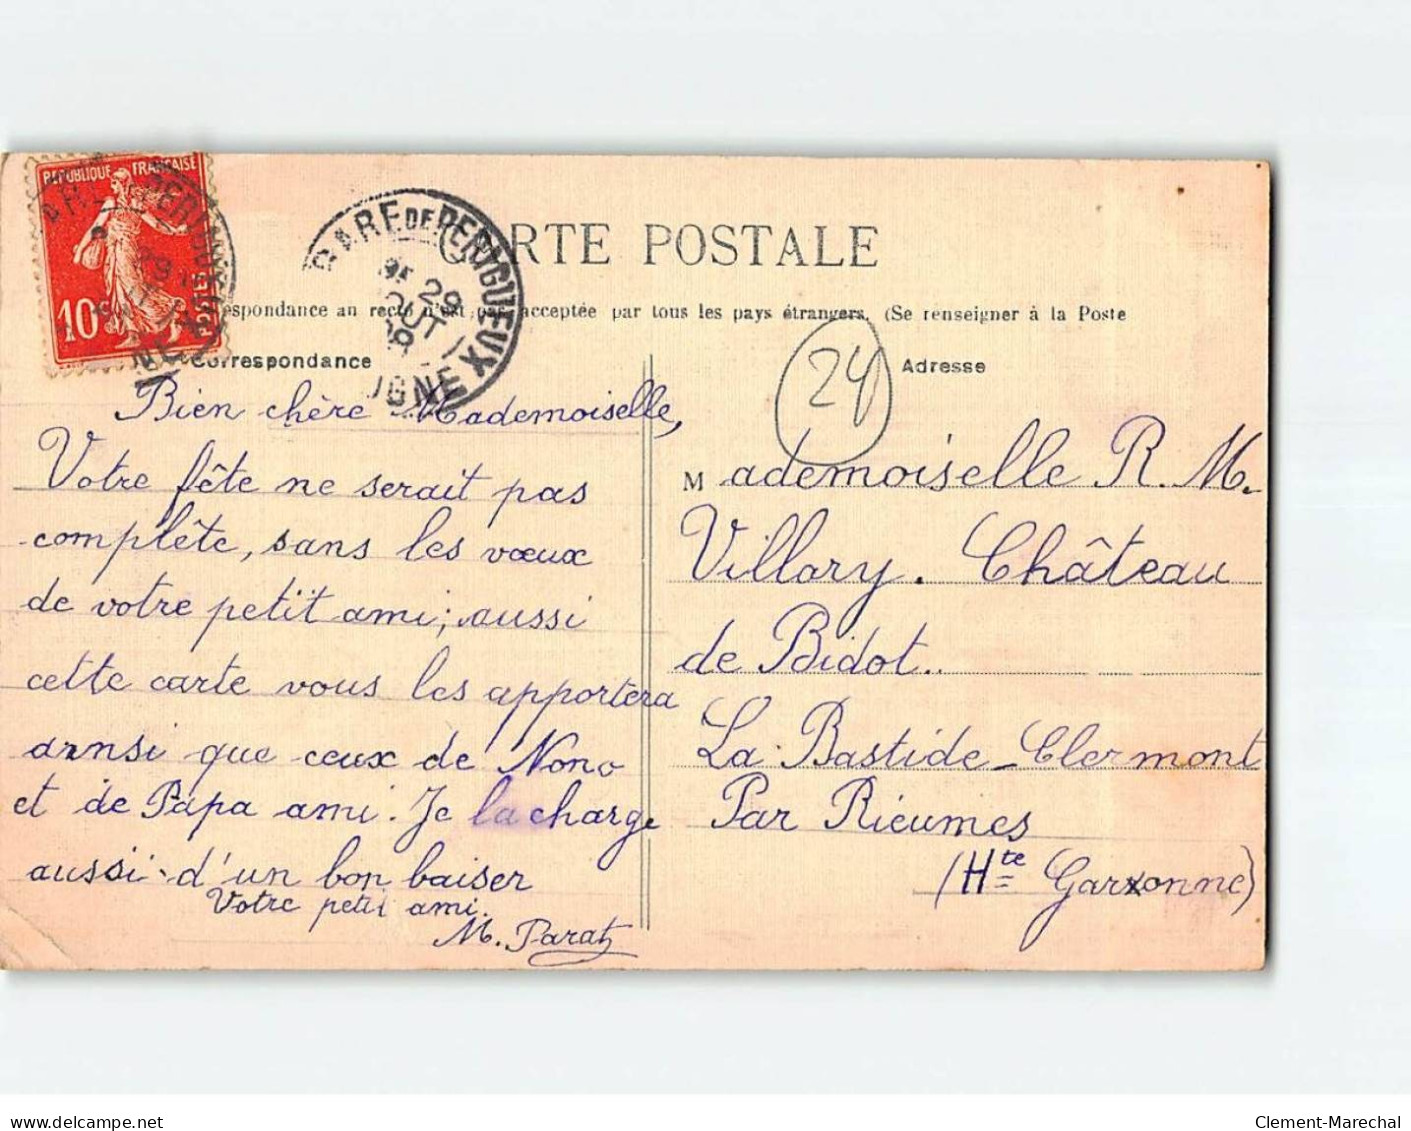 REPUBLIQUE FRANÇAISE
10
GARE DE PERIGUEUX
29
CARTE POSTALE
respondance au recto n'est pas acceptée par tous les pays étrangers. (Se renseigner à la Poste
Correspondance
Bien chère Mademoiselle,
Votre fête ne serait pas
complète, sans les vœux
de votre petit ami; aussi
cette carte vous les apportera
ainsi que ceux de Nono
et de Papa ami. Je la charge
aussi d'un bon baiser
Votre petit ami.
M. Parat
24
Adresse
Mademoiselle R. M.
Villary. Château
de Bidot..
La Bastide-Clermont
Par Rieumes
(Hte Garonne)
Clement-Marechal